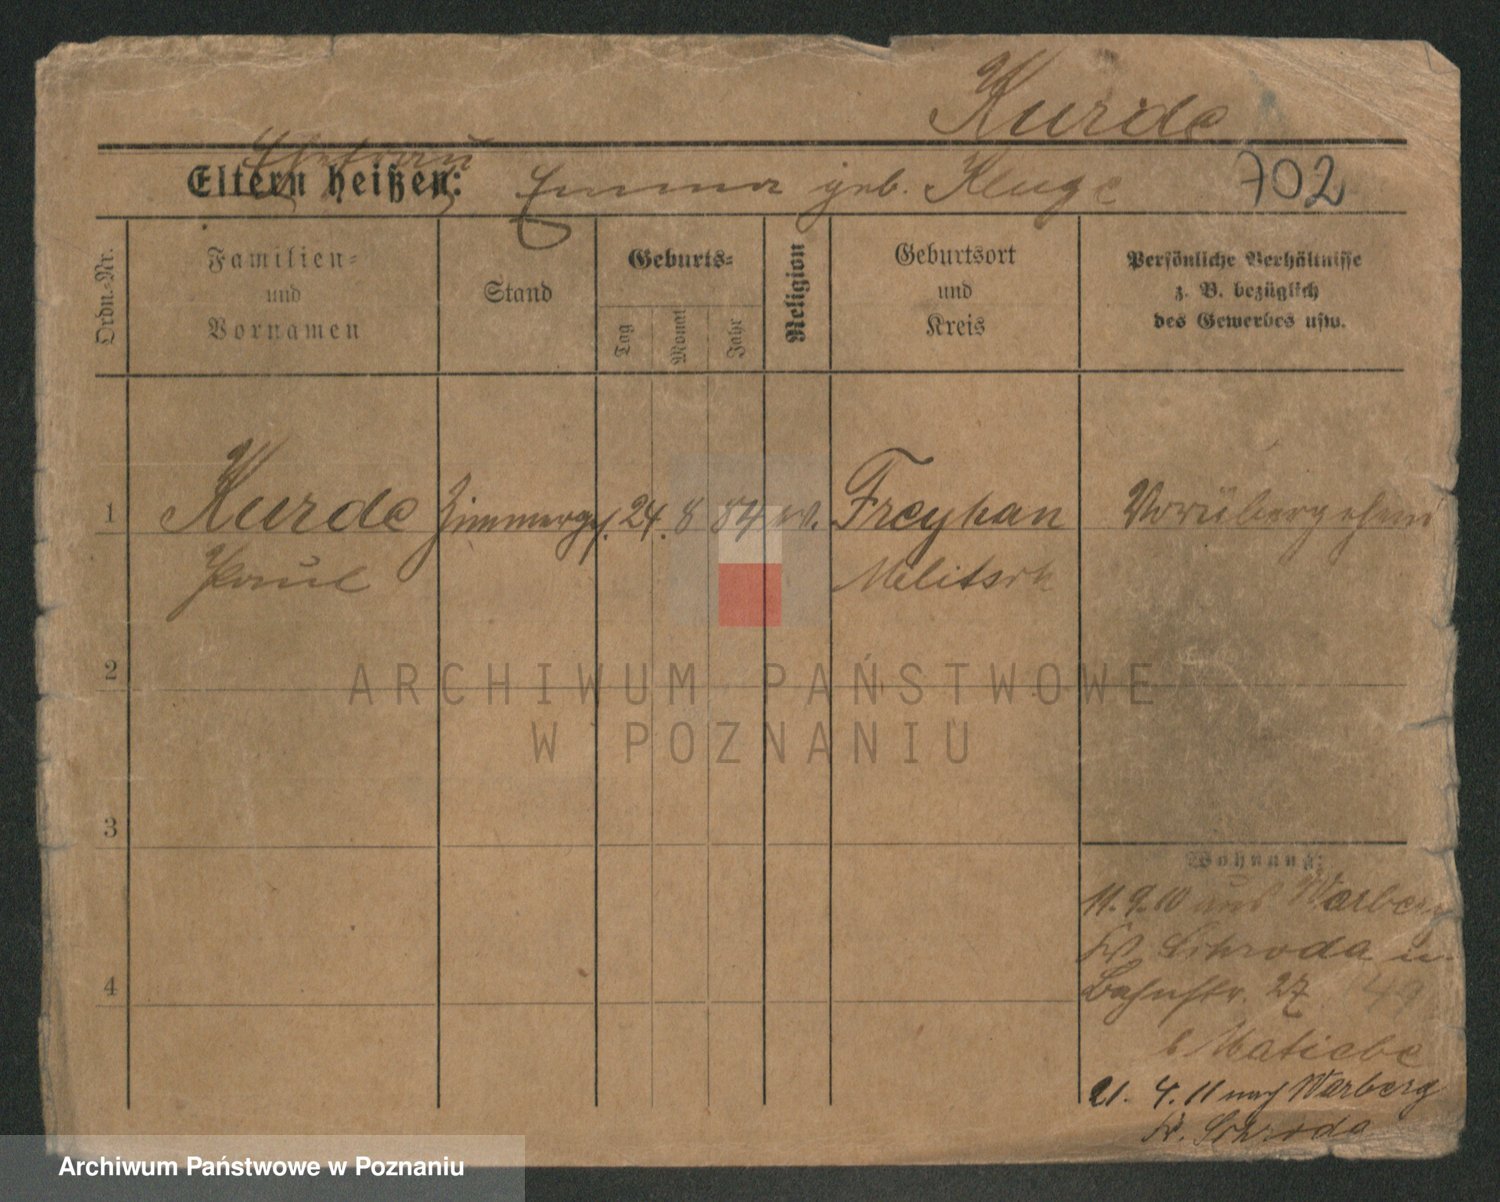 Kurde
Ehefrau
Eltern heißen: Emma geb. Kluge 702
Ordn.-Nr.
Familien-
und
Vornamen
Stand
Geburts-
Tag
Monat
Jahr
Religion
Geburtsort
und
Kreis
Persönliche Verhältnisse
z. B. bezüglich
des Gewerbes usw.
1 Kurde Zimmerges. 24. 8 84 ev. Freyhan Vorübergehend
Paul Militsch
2
3
4
Wohnung:
11. 9. 10 aus Warberg
Kr. Schroda n.
Bahnstr. 27 49
b Matiebe
21. 4. 11 nach Warberg
Kr. Schroda
ARCHIWUM PAŃSTWOWE
W POZNANIU
Archiwum Państwowe w Poznaniu